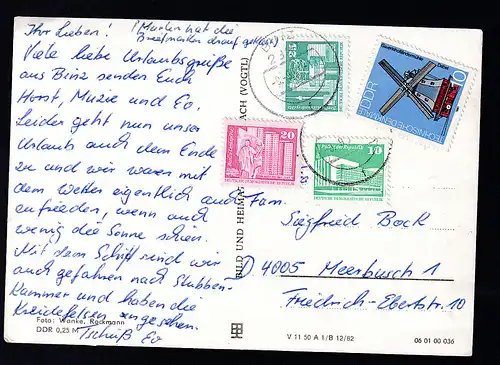 Ihr Lieben! (Marlen hat die
Briefmarken drauf geklebt)
Viele liebe Urlaubsgrüße
aus Binz senden Euch
Horst, Muzie und Eo.
Leider geht nun unser
Urlaub auch dem Ende
zu und wir waren mit
dem Wetter eigentlich auch
zufrieden, wenn auch
wenig die Sonne schien.
Mit dem Schiff sind wir
auch gefahren nach Stubben-
kammer und haben die
Kreidefelsen angesehen.
Tschüß Eo
Foto: Wanke, Rackmann
DDR 0,25 M
BILD UND HEIMAT
BACH (VOGTL)
Fam.
Siegfried Bock
D 4005 Meerbusch 1
Friedrich-Ebertstr 10
V 11 50 A 1/B 12/82
06 01 00 036
10
DDR
TECHNISCHE DENKMALE
20
DEUTSCHE DEMOKRATISCHE REPUBLIK
10
DEUTSCHE DEMOKRATISCHE REPUBLIK